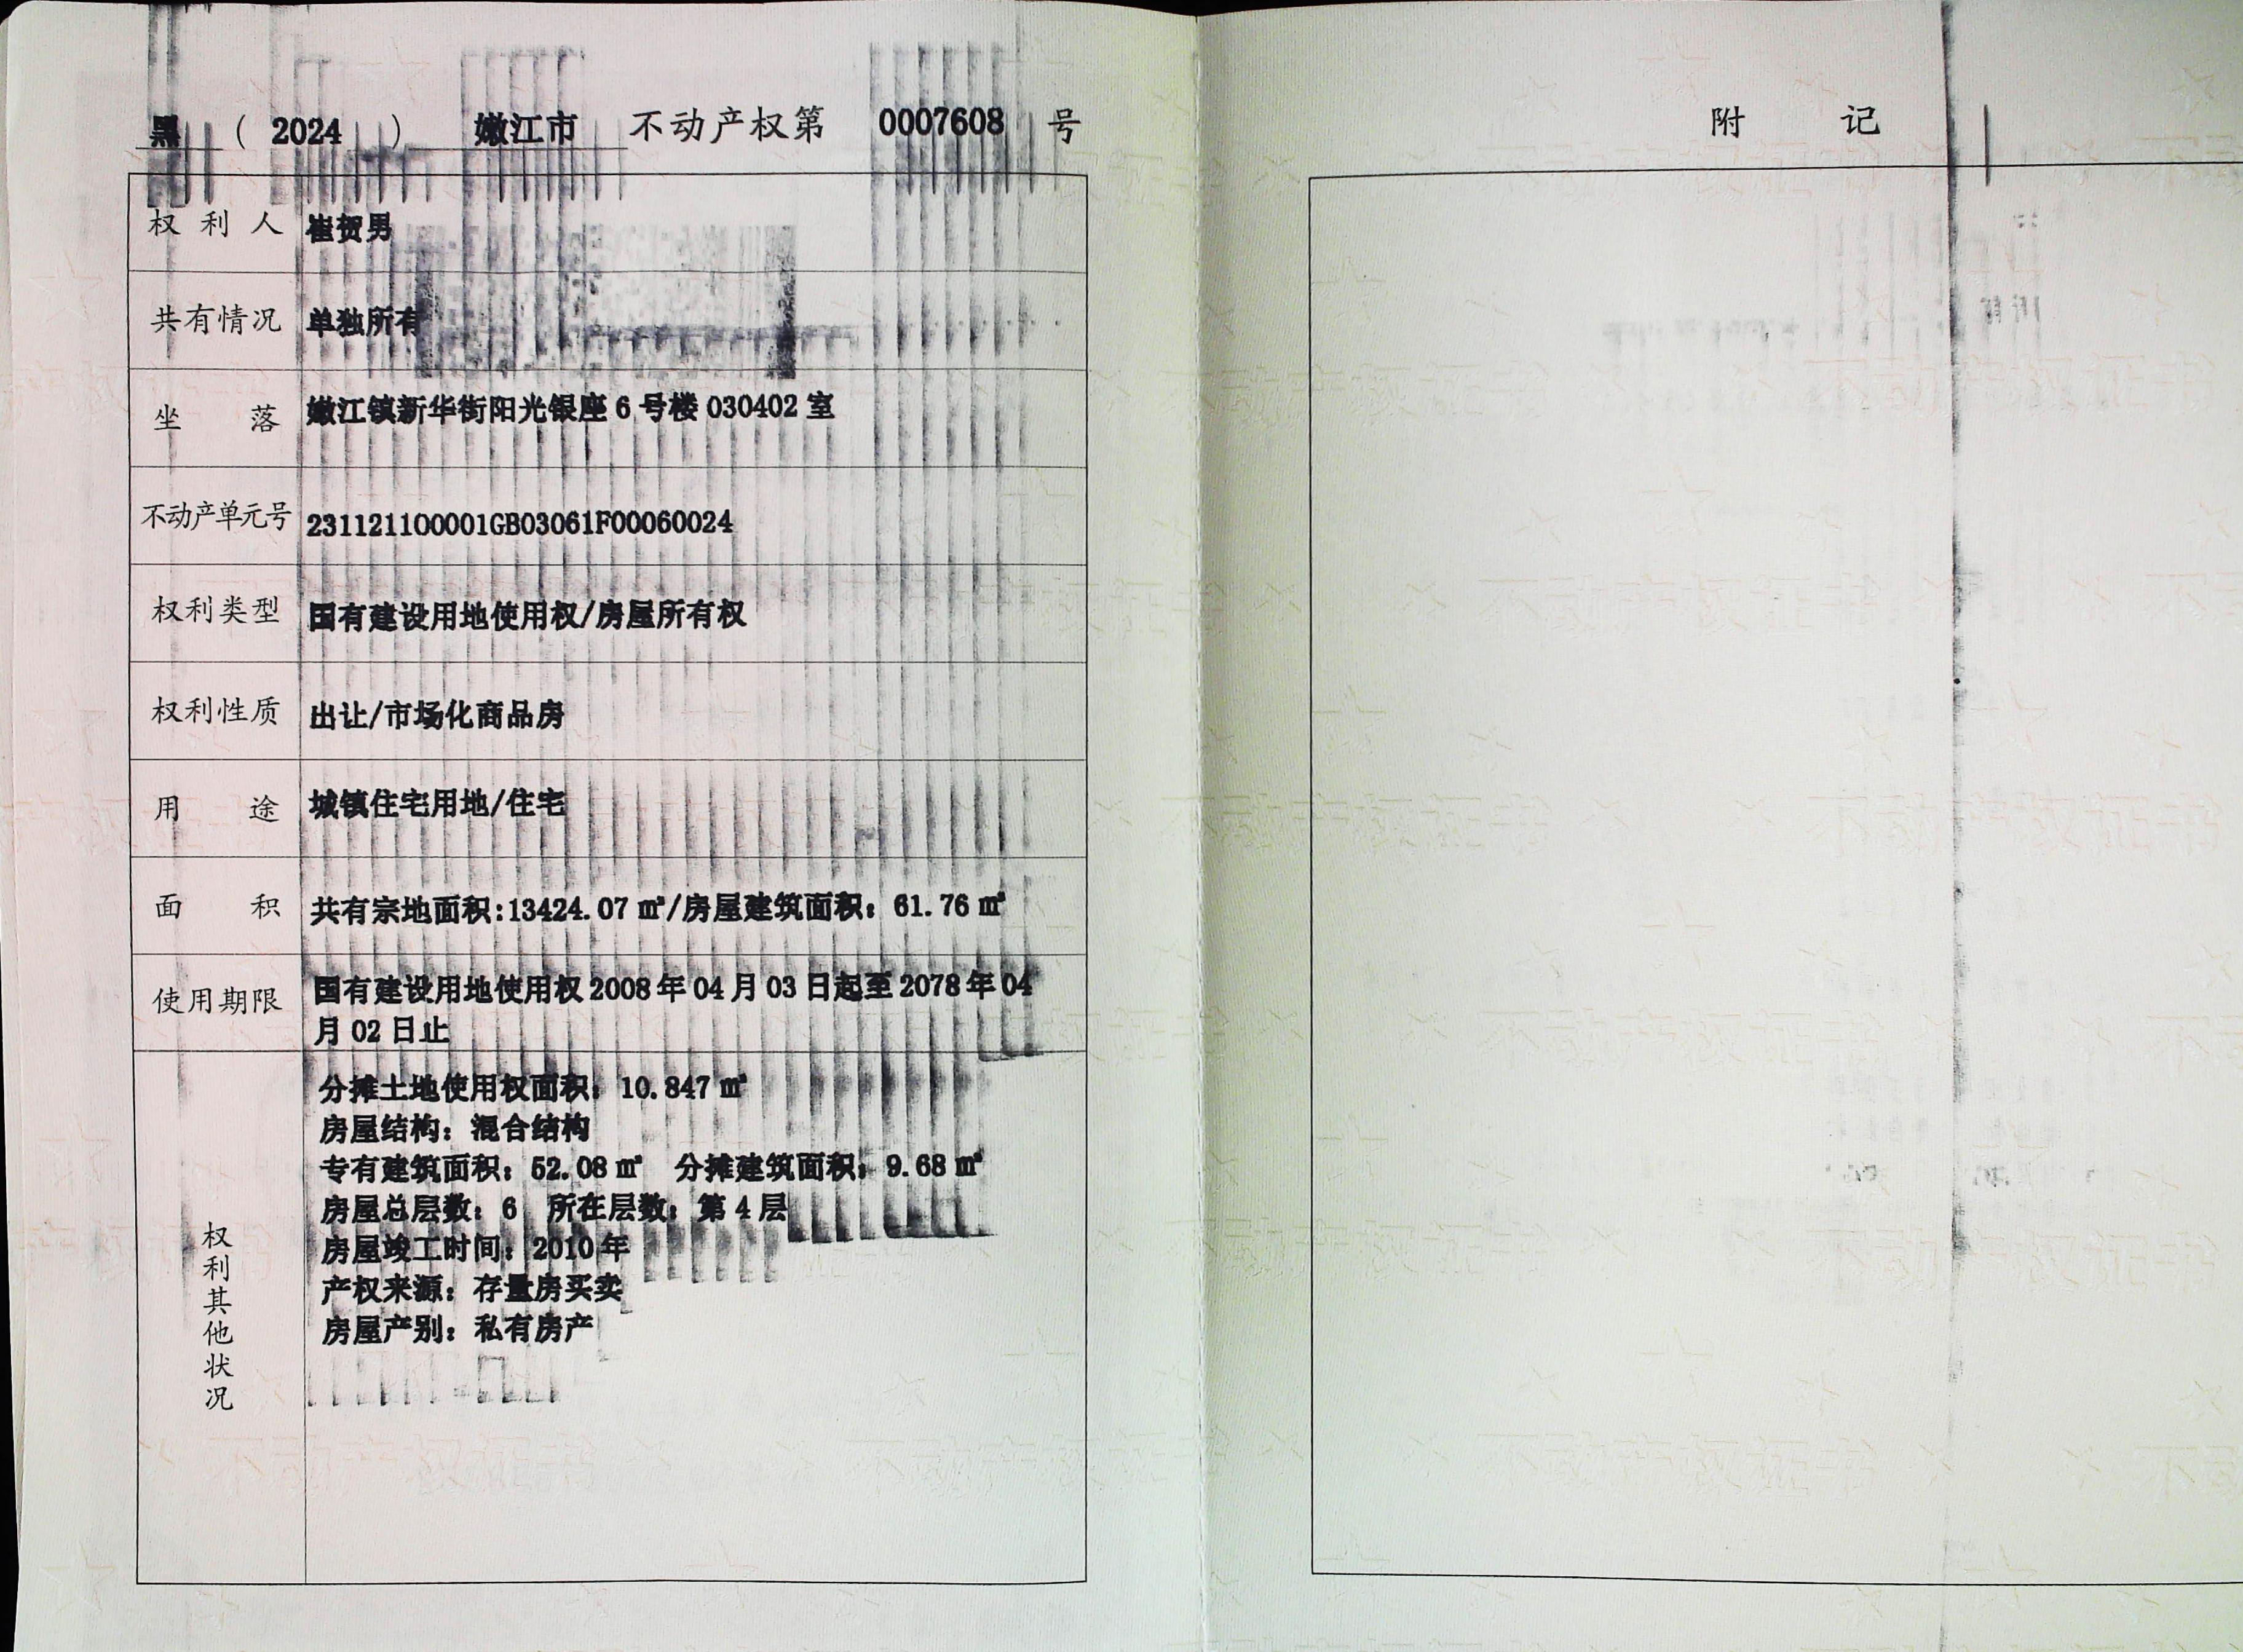 黑 ( 2024 ) 嫩江市 不动产权第 0007608 号
权利人 崔贺男
共有情况 单独所有
坐落 嫩江镇新华街阳光银座 6 号楼 030402 室
不动产单元号 231121100001GB03061F00060024
权利类型 国有建设用地使用权/房屋所有权
权利性质 出让/市场化商品房
用途 城镇住宅用地/住宅
面积 共有宗地面积:13424.07 ㎡/房屋建筑面积：61.76 ㎡
使用期限 国有建设用地使用权 2008 年 04 月 03 日起至 2078 年 04
月 02 日止
权利其他状况
分摊土地使用权面积：10.847 ㎡
房屋结构：混合结构
专有建筑面积：52.08 ㎡ 分摊建筑面积：9.68 ㎡
房屋总层数：6 所在层数：第 4 层
房屋竣工时间：2010 年
产权来源：存量房买卖
房屋产别：私有房产
附记